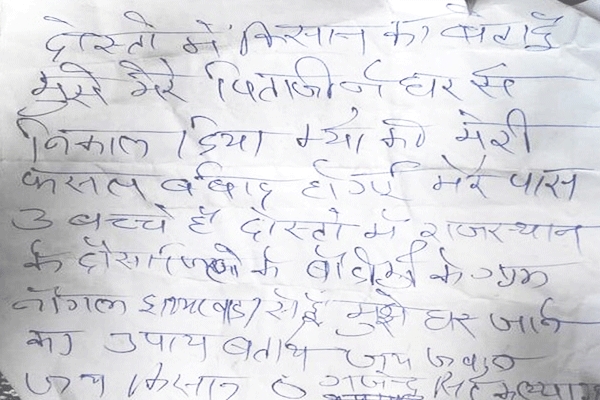 दोस्तो में किसान का बेटा हुँ
मुझे मेरे पिताजी ने घर से
निकाल दिया क्यों की मेरी
फसल बर्बाद होगई मेरे पास
3 बच्चे है दोस्तो में राजस्थान
के दौसा जिले के के ग्राम
नांगल से हुँ मुझे घर जाने
का उपाय बताये जय जवान
जय किसान गजेन्द्र सिंह